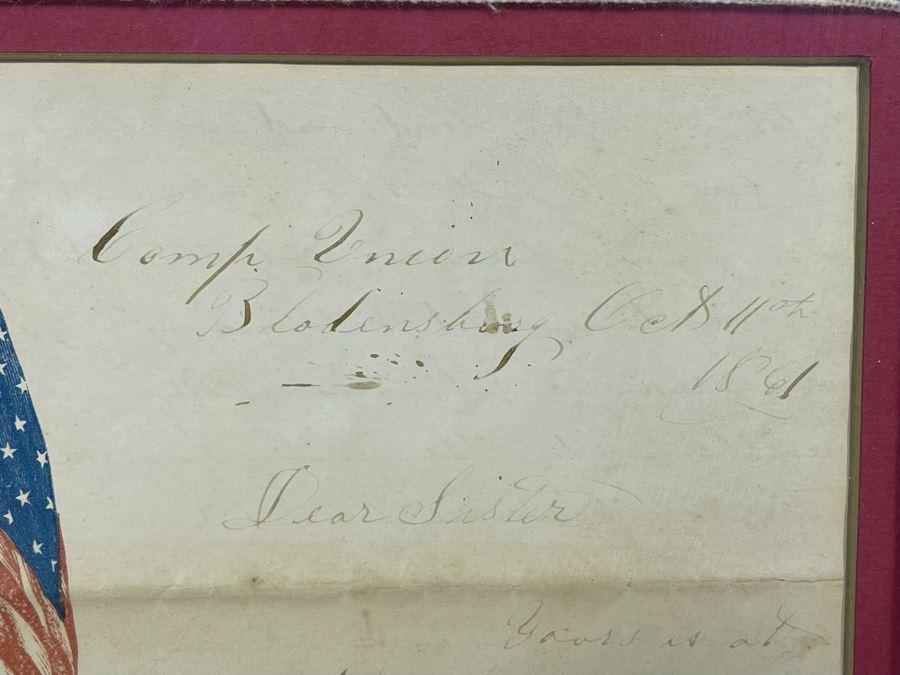 Camp Union
Bladensburg Oct 11th
1861
Dear Sister
Yours is at